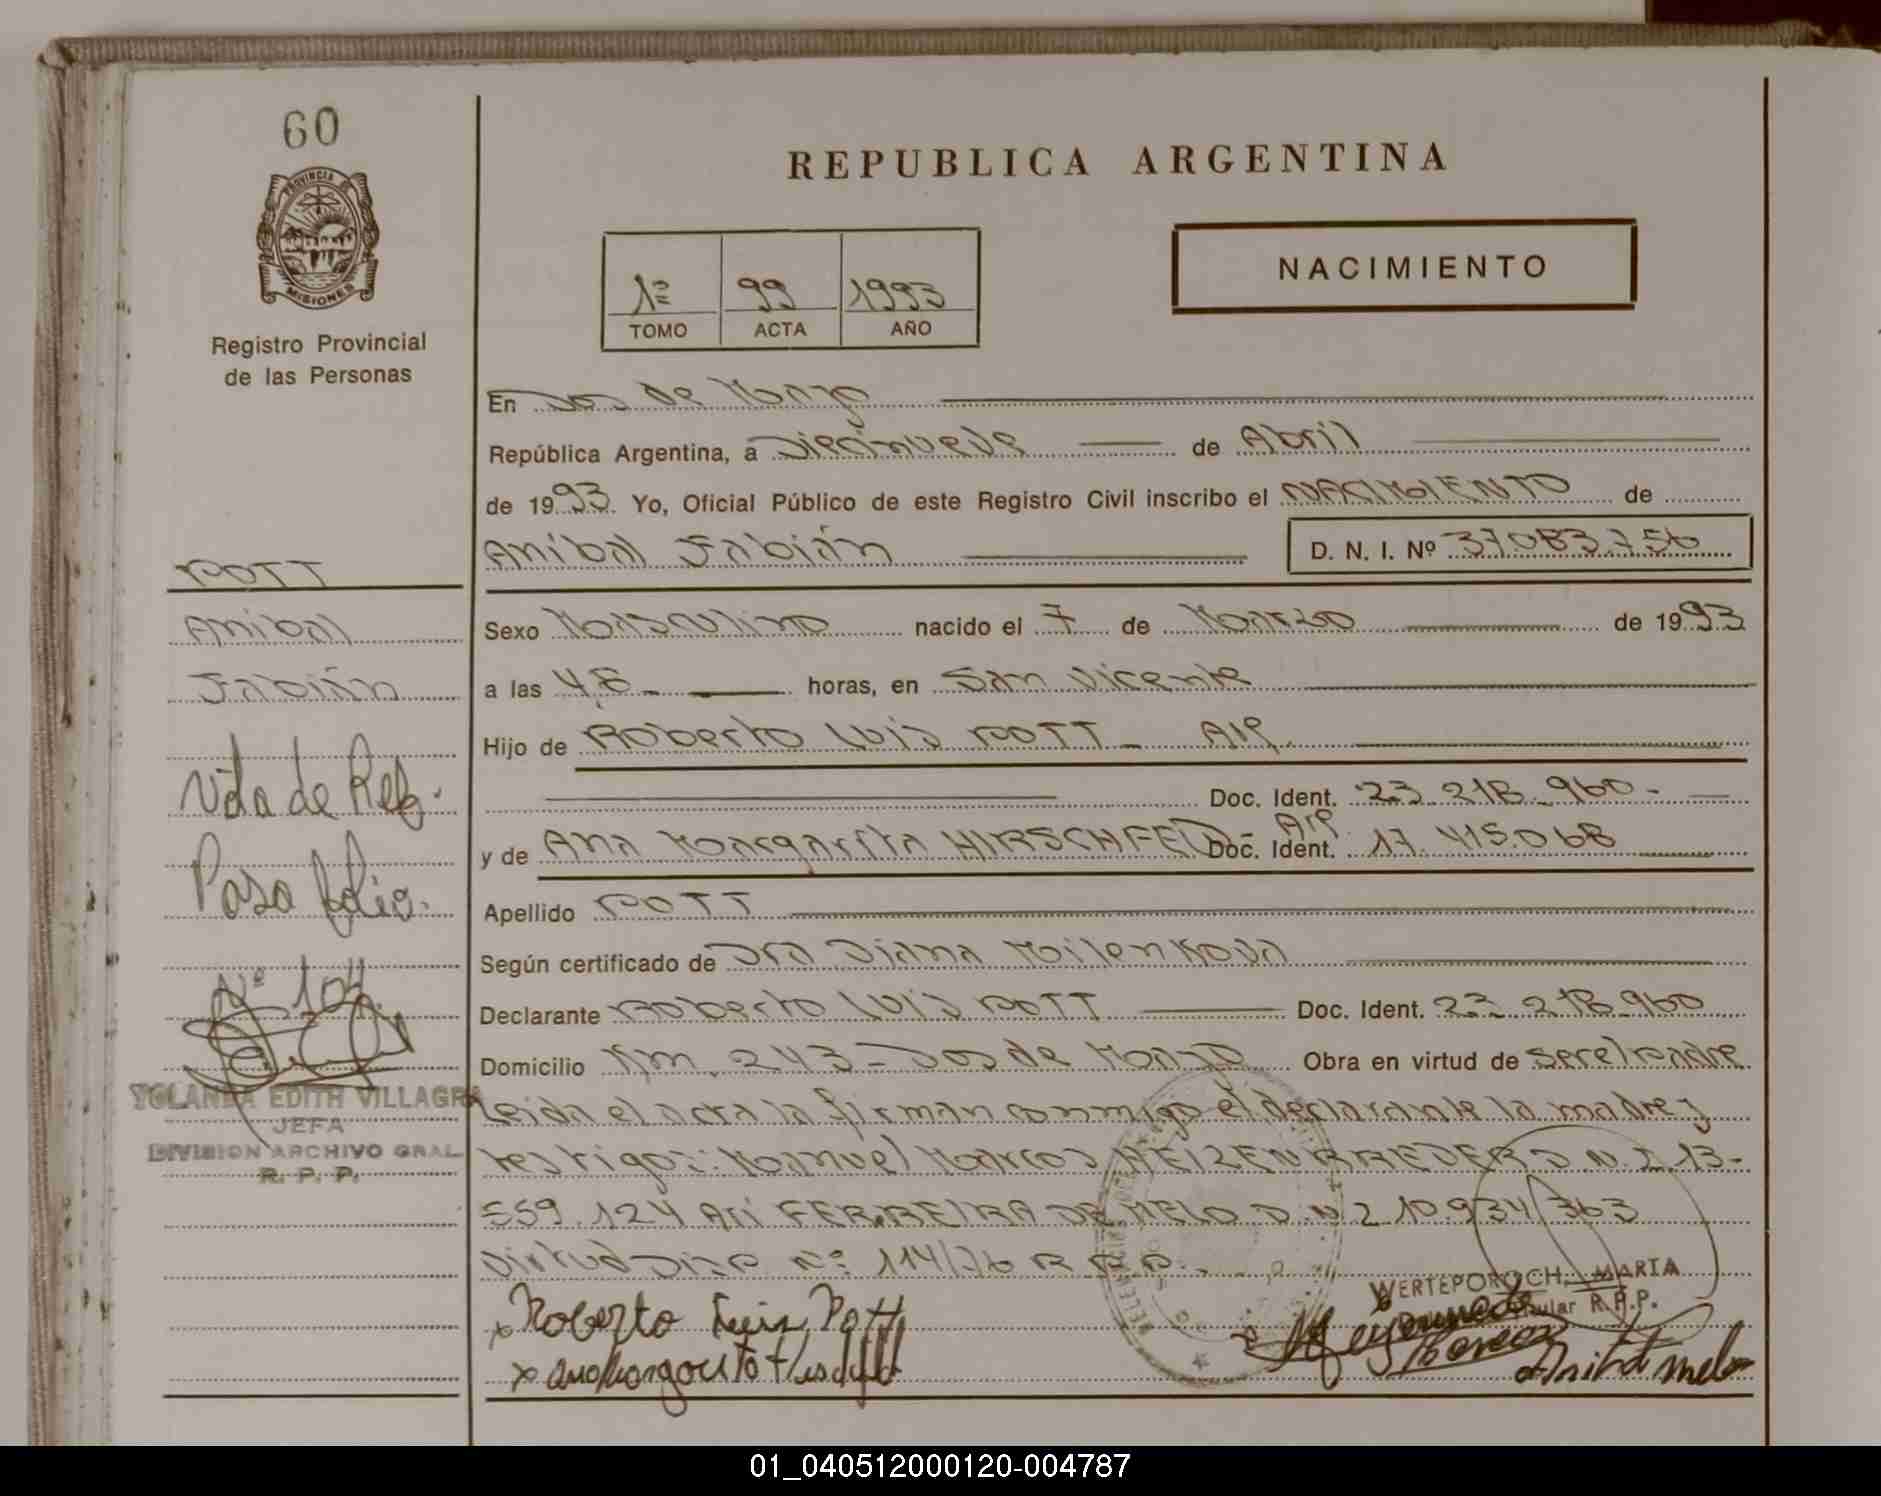 60
REPUBLICA ARGENTINA
PROVINCIA DE
MISIONES
Registro Provincial
de las Personas
1º 99 1993
TOMO ACTA AÑO
NACIMIENTO
En Dos de Mayo
República Argentina, a Diecinueve de Abril
de 1993 Yo, Oficial Público de este Registro Civil inscribo el NACIMIENTO de
Aníbal Fabián D. N. I. Nº 37.083.756
POTT
Aníbal
Fabián
Sexo Masculino nacido el 7 de Marzo de 1993
a las 4,8 horas, en San Vicente
Hijo de Roberto Luis POTT - Arg.
Doc. Ident. 23.218.960 -
y de Ana Margarita HIRSCHFELD - Arg. Doc. Ident. 17.415.068
Apellido POTT
Según certificado de Dra Diana Milenkova
Declarante Roberto Luis POTT Doc. Ident. 23.218.960
Domicilio Km. 243 - Dos de Mayo Obra en virtud de ser el padre
Leida el acta la firman conmigo el declarante la madre y
testigos: Manuel Marcos D.N.I 13-
559.124 Ari FERREIRA DE MELO D.N.I 10.934/363
Virtud Disp Nº 114/76 R.P.P.
Nota de Ref.
Pasa folio.
Nº 104.
YOLANDA EDITH VILLAGRA
JEFA
DIVISION ARCHIVO GRAL.
R. P. P.
WERTEPOROCH, MARIA
Titular R.P.P.
x Roberto Luis Pott
x Ana Margarita Hirschfeld
01_040512000120-004787